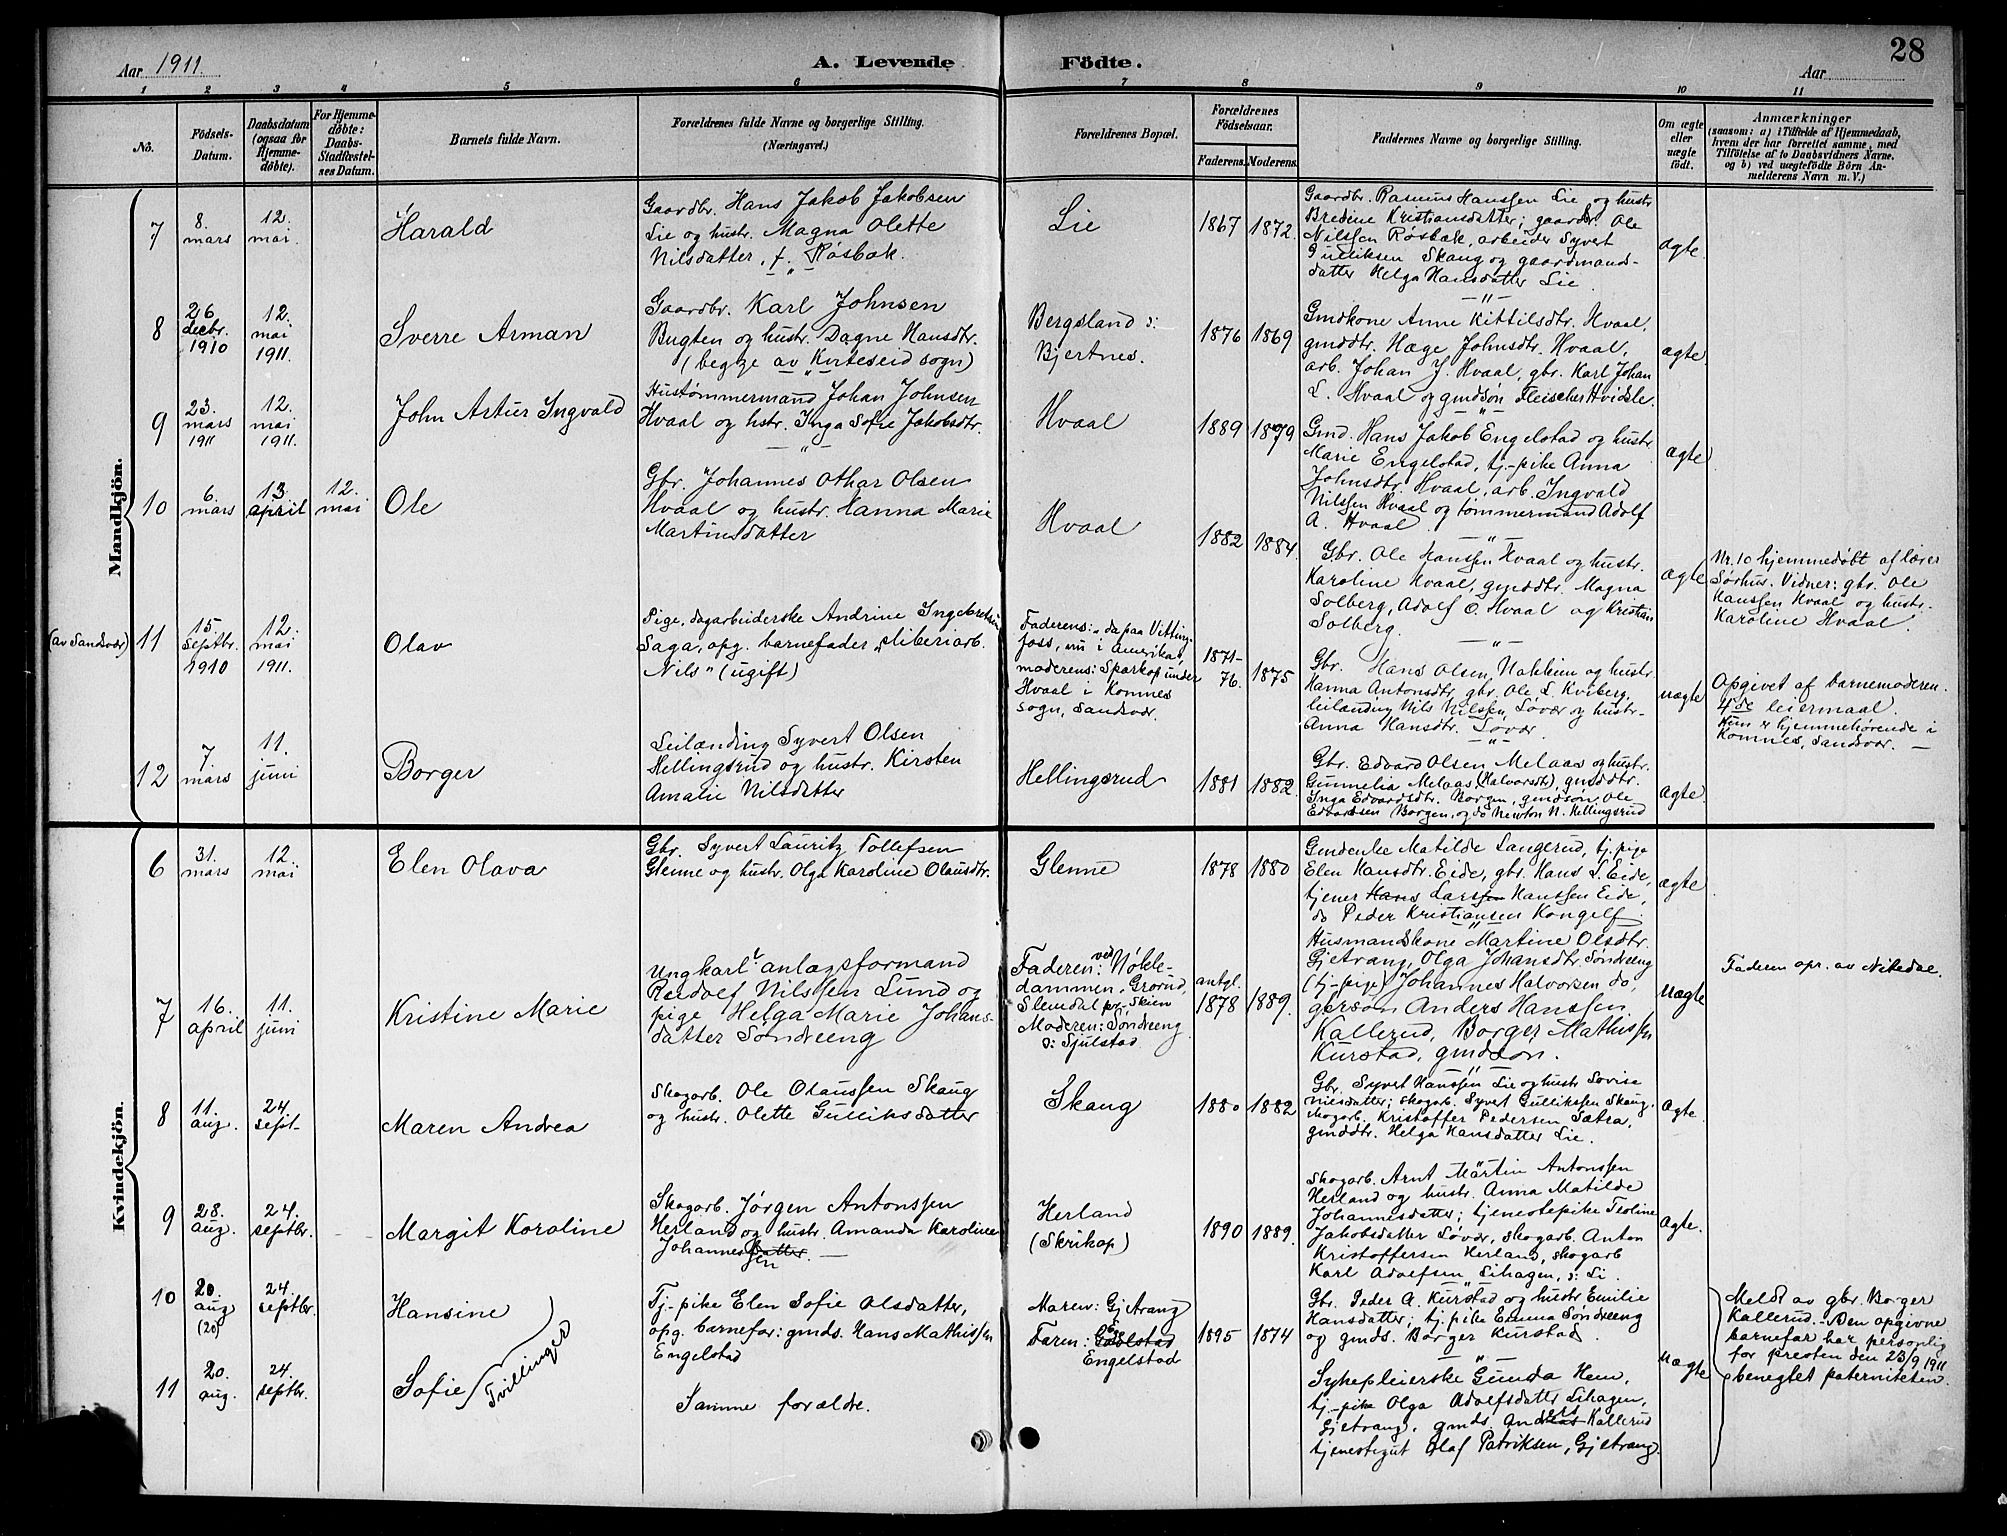 Aar 1911.
A. Levende Födte.
Aar
28
1 2 3 4 5 6 7 8 9 10 11
No.
Födsels-Datum.
Daabsdatum (ogsaa for Hjemme-döbte).
For Hjemme-döbte: Daabs-Stadfæstel-ses Datum.
Barnets fulde Navn.
Forældrenes fulde Navne og borgerlige Stilling.
(Næringsvei.)
Forældrenes Bopæl.
Forældrenes Födselsaar.
Faderens. Moderens.
Faddernes Navne og borgerlige Stilling.
Om ægte eller uægte födt.
Anmærkninger
(saasom: a) i Tilfælde af Hjemmedaab,
hvem der har forrettet samme, med
Tilföielse af to Daabsvidners Navne.
og b) ved uægtefödte Börn An-
melderens Navn m. V.)
Mandkjön.
7
8. mars
12. mai.
Harald
Gaardbr. Hans Jakob Jakobsen
Lie og hustr. Magna Olette
Nilsdatter, f. Røsbak.
Lie
1867
1872.
Gaardbr. Rasmus Hanssen Lie og hustr
Bredine Kristiansdatter; gaardbr. Ole
Nilssen Røsbæk, arbeider Syvert
Gulliksen Skaug og gaardmands-
datter Helga Hansdatter Lie.
ægte.
8
26 decbr. 1910
12. mai 1911.
Sverre Arman
Gaardbr. Karl Johnsen
Bugten og hustr. Dagne Hansdtr.
(begge av Kviteseid sogn)
Bergsland d:
Bjertnes.
1876
1869
Gmdkone Anne Kittilsdtr. Hvaal,
gmddtr. Hæge Johnsdtr. Hvaal,
arb. Johan J. Hvaal, gbr. Karl Johan
L. Hvaal og gmdsøn Fleischer Hvidsle.
ægte.
9
23. mars 1911
12. mai 1911.
John Artur Ingvald
Hustømmermand Johan Johnsen
Hvaal og hstr. Inga Sofie Jakobsdtr.
Hvaal
1889
1879
Gmd. Hans Jakob Engelstad og hustr
Marie Engelstad, tj-pike Anna
Johnsdtr. Hvaal, arb. Ingvald
Nilssen Hvaal og tømmermand Adolf
A. Hvaal
ægte
10
6. mars
13 april
12. mai
Ole
Gbr. Johannes Othar Olsen
Hvaal og hustr. Hanna Marie
Martinsdatter
Hvaal
1882
1884
Gbr. Ole Hanssen Hvaal og hustr.
Karoline Hvaal, gmddtr. Magna
Solberg, Adolf O. Hvaal og Kristian
Solberg.
ægte
Nr. 10 hjemmedøbt af lærer
Sørhus. Vidner: gbr. Ole
Hanssen Hvaal og hustr.
Karoline Hvaal.
(av Sandsvær)
11
15. Septbr. 1910
12. mai 1911.
Olav
Pige, dagarbeiderske Andrine Ingebretsen
Saga, opg. barnefader "sliberiarb.
Nils" (ugift)
Faderens: "da paa Vitting-
foss, nu i Amerika",
moderens: Sparkop under
Hvaal i Komnes
sogn, Sandsvær.
1871-76.
1875
Gbr. Hans Olsen, Nakkim og hustr.
Hanna Antonsdtr, gbr. Ole L. Kviberg,
leilænding Nils Nilssen, Løvær og hustr-
Anna Hansdtr. Løvær.
uægte
Opgivet af barnemoderen.
4de leiermaal.
Hun er hjemmehørende i
Komnes, Sandsvær.
12
7 mars
11. juni
Borger
Leilænding Syvert Olsen
Hellingsrud og hustr. Kirsten
Amalie Nilsdatter
Hellingsrud
1881
1882.
Gbr. Edvard Olsen Melaas og hustr.
Gunnelia Melaas (Halvorsdtr), gmddtr.
Inga Edvardsdtr. Borgen, gmdsøn Ole
Edvardsen Borgen, og do Newton N. Hellingsrud
ægte.
Kvindekjön.
6
31. mars
12. mai
Elen Olava
Gbr. Syvert Lauritz Tollefsen
Glenne og hustr. Olga Karoline Olausdtr.
Glenne
1878
1880
Gmdenke Matilde Langerud, tj. pige
Elen Hansdtr. Eide, gbr. Hans L. Eide,
tjener Hans Larssen Hanssen Eide,
do Peder Kristiansen Kongelf.
ægte
7
16. april
11. juni
Kristine Marie
Ungkarl anlægsformand
Reidolf Nilssen Lund og
pige Helga Marie Johans-
datter Søndreeng
Faderen: ved Nøkle-
dammen, Grorud,
Slemdal pr. Skien
Moderen: Søndreeng
d: Sjulstad
antgl. 1878
1889.
Husmandskone Martine Olsdtr.
Gjetrang, Olga Johansdtr. Søndreeng
(tj-pige) Johannes Halvorsen do,
gårsøn Anders Hanssen
Kallerud, Borger Mathissen
Kurstad, gmdsøn.
Uægte
Faderen opr. av Nitedal.
8
11. aug.
24. sept-
Maren Andrea
Skogarb. Ole Olaussen Skaug
og hustr. Olette Gulliksdatter
Skaug
1880
1882
Gbr. Syvert Hanssen Lie og hustr Lovise
Nilsdatter; skogarb. Syvert Gullikssen Skaug,
skogarb. Kristoffer Pedersen Sætra,
gmddtr. Helga Hansdatter Lie.
Ægte.
9
28. aug.
24. septbr.
Margit Karoline
Skogarb. Jørgen Antonssen
Herland og hustr. Amanda Karoline
Johannesdatter
sen
Herland
(Skrikop)
1890
1889.
Skogarb. Arnt Martin Antonssen
Herland og hustr. Anna Matilde
Johannesdatter; tjenestepike Teoline
Jakobsdatter Løvær, skogarb. Anton
Kristoffersen Herland, skogarb
Karl Adolfsen Lihagen, d: Li.
Ægte.
10
20. aug (20)
24. septbr.
Hansine
Tj-pike Elen Sofie Olsdatter,
opg. barnefar: gmds. Hans Mathissen
Engelstad
Moren: Gjetrang
Faren:
Engelstad
1895
1874
Gbr. Peder A. Kurstad og hustr Emilie
Hansdatter; tj. pike Emma Søndreeng
og gmds. Borger Kurstad.
Uægte
Meldt av gbr. Borger
Kallerud. - Den opgivne
barnefar har personlig
for presten den 23/9 1911
benegtet paterniteten.
11
20. aug.
24. septbr.
Sofie
Tvillinger
Samme forældre.
Sykepleierske Gunda Hem,
tj.-pike Olga Adolfsdatter Lihagen,
Gjetrang, gmds. Anders Kallerud
tjenestegut Olaf Patriksen, Gjetrang.